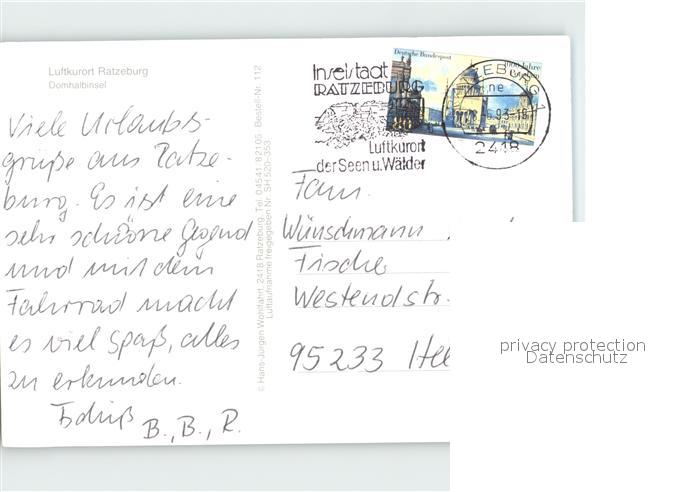 Luftkurort Ratzeburg
Domhalbinsel
Viele Urlaubs-
grüße aus Ratze-
burg. Es ist eine
sehr schöne Gegend
und mit dem
Fahrrad macht
es viel Spaß, alles
zu erkunden.
B., B., R.
© Hans-Jürgen Wohlfahrt, 2418 Ratzeburg, Tel. 04541/82105 Bestell-Nr. 112
Luftaufnahme freigegeben Nr. SH 520-353
Inselstadt
RATZEBURG
Luftkurort
der Seen u. Wälder
Deutsche Bundespost
1000 Jahre
80
2418
Fam.
Wünschmann
Fischer
Westendstr.
95233 Hel
privacy protection
Datenschutz